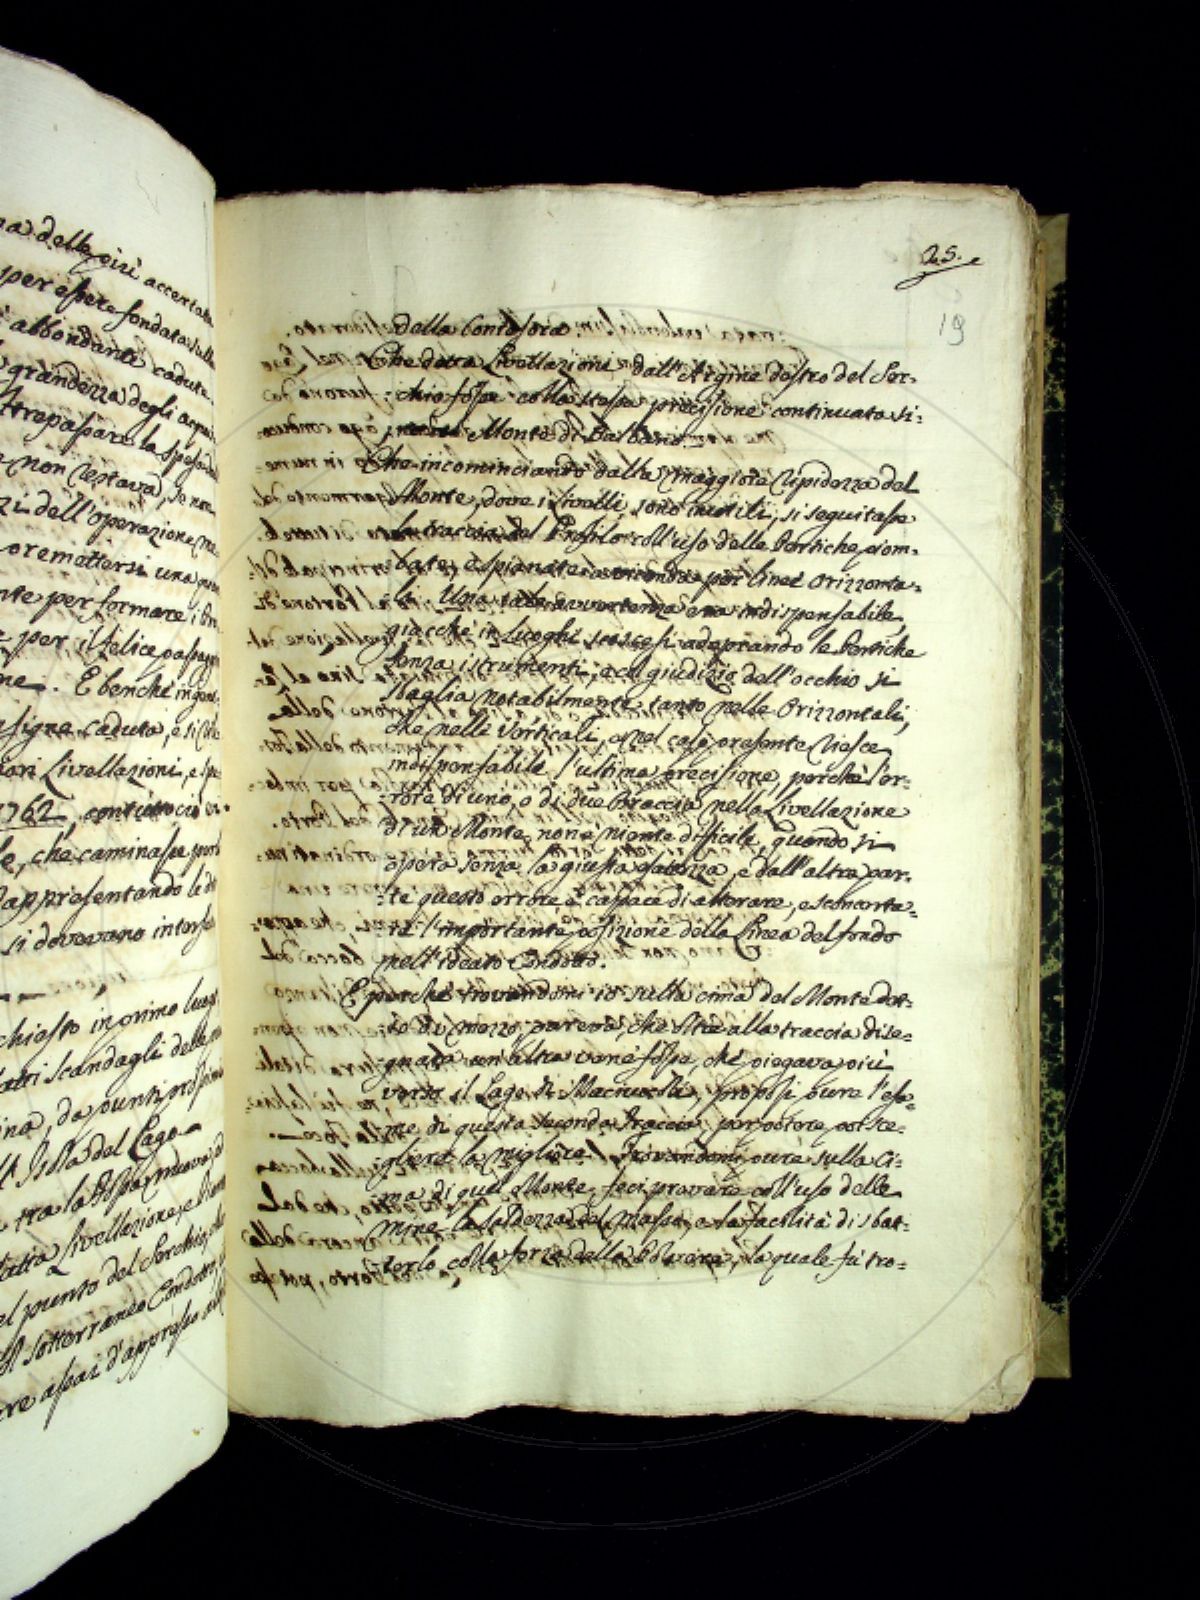 na delle più accertate
per essere fondata sulla
abbondante caduta
grandezza degli acqui
ttrepassare la spesa
non restava, se non
zi dell'operazione
premettersi una
nte per formare i
per il felice passag
ne. E benchè in gene
signe caduta, e si
iori Livellazioni, e
1762, contuttociò
le, che caminasse
Rappresentando le
si dovevano
chiesto in primo luogo
altri scandagli della
ina, da punti
Isola del Lago
tra la
altra Livellazione, e
el punto del Serchio,
sotterraneo Condotto,
re assai d'appresso
25.
19
della Contesora
Che detta Livellazione dall'Argine destro del Ser-
chio fosse colla stessa precisione continuata si-
Monte di Balbano.
Che incominciando dalla maggiore ripidezza del
Monte, dove i Livelli sono inutili, si seguitasse
la traccia del Profilo coll'uso delle Pertiche piom-
bate, e spianate a vicenda per linee Orizzonta-
li. Una tale avvertenza era indispensabile
giacchè in luoghi scoscesi adoprando le Pertiche
senza istrumenti, a col giudizio dell'occhio si
sbaglia notabilmente tanto nelle Orizzontali,
che nelle Verticali, e nel caso presente riesce
indispensabile l'ultima precisione, perchè l'er-
rore di uno, o di due Braccia nella Livellazione
di un Monte non è niente difficile, quando si
opera senza la giusta esattezza, e dall'altra par-
te questo errore è capace di alterare, e sconcerta-
re l'importante posizione della Linea del fondo
nell'ideato Condotto.
E perchè trovandomi io sulla cima del Monte det-
to di mezzo, pareva, che oltre alla traccia dise-
gnata un'altra ven'è fosse, che piegava più
verso il Lago di Maciuccoli, proposi pure l'esa-
me di questa seconda Traccia, per potere poi sce-
gliere la migliore. Trovandomi pure sulla ci-
ma di quel Monte, feci provare coll'uso delle
mine la saldezza del masso, e la facilità di sbat-
terlo colla forza della Polvere, la quale fù tro-